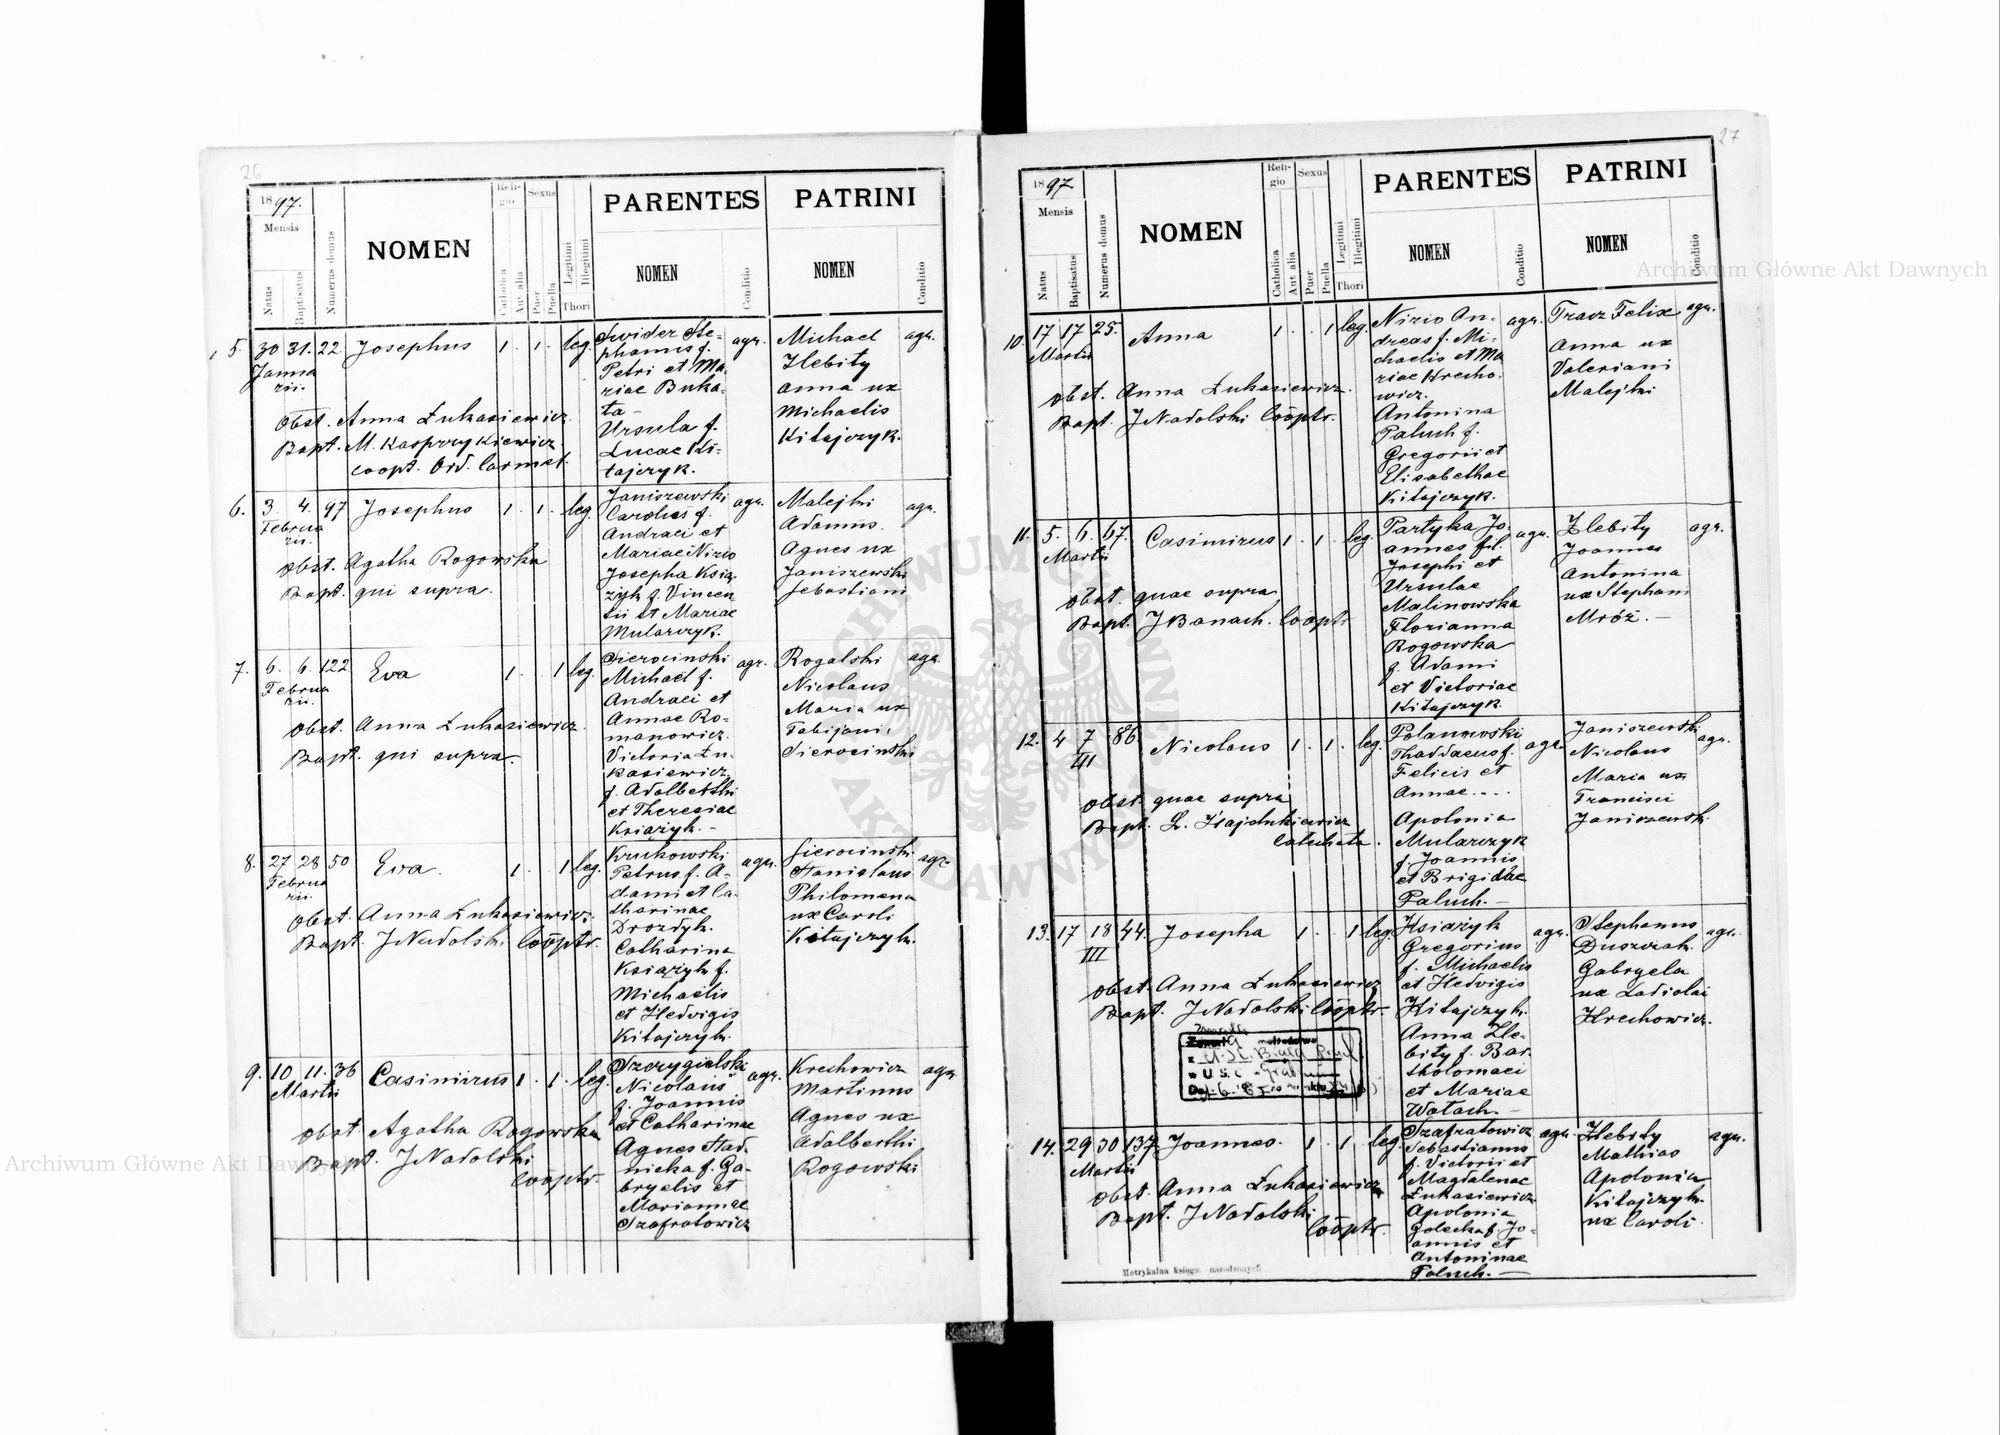 26
1897.
Mensis
Natus
Baptisatus
Numerus domus
NOMEN
Religio
Catholica
Aut alia
Sexus
Puer
Puella
Legitimi
Illegitimi
Thori
PARENTES
NOMEN
Conditio
PATRINI
NOMEN
Conditio
5. 30 31. 22 Josephus 1. 1. leg.
Januarii.
Swider Ste-
phanus f.
Petri et Ma-
riae Buka-
ta-
Ursula f.
Lucae Ki-
tajczyk.
agr.
Michael
Zlebity
Anna ux
Michaelis
Kitajczyk.
agr.
Obst. Anna Łukasiewicz
Bapt. M. Kasprzykiewicz
coopt. Ord. Carmel.
6. 3. 4. 97 Josephus 1. 1. leg.
Februa
rii.
Janiszewski
Carolus f.
Andraei et
Mariae Nizio
Josepha Ksią-
żyk f. Vincen
tii et Mariae
Mularczyk.
agr.
Malejki
Adamus.
Agnes ux
Janiszewski
Sebastiani
agr.
Obst. Agatha Rogowska
Bapt. qui supra.
7. 6. 6. 122 Eva 1. 1 leg.
Februa
rii.
Sierocinski
Michael f.
Andraei et
Annae Ro-
manowicz.
Victoria Łu-
kasiewicz
f. Adalberthi
et Theresiae
Książyk. -
agr.
Rogalski
Nicolaus
Maria ux
Fabijani,
Sierocinski
agr.
Obst. Anna Łukasiewicz
Bapt. qui supra.
8. 27 28 50 Eva. 1. 1 leg.
Februa
rii.
Krukowski
Petrus f. A-
dami et Ca-
tharinae
Drozdyk.
Catharina
Książyk f.
Michaelis
et Hedvigis
Kitajczyk.
agr.
Sierocinski
Stanislaus
Philomena
ux Caroli
Kitajczyk.
agr.
Obst. Anna Łukasiewicz.
Bapt. J Nadolski Coöptr.
9. 10 11. 36 Casimirus 1. 1. leg.
Martii
Szczygielski
Nicolaus
f. Joannis
et Catharinae
Agnes Stad-
nicka f. Ga-
bryelis et
Mariannae
Szafratowicz
agr.
Krechowicz
Martinus
Agnes ux
Adalberthi
Rogowski
agr.
Obst Agatha Rogowska
Bapt. J Nadolski
Coöptr.
27
1897
Mensis
Natus
Baptisatus
Numerus domus
NOMEN
Religio
Catholica
Aut alia
Sexus
Puer
Puella
Legitimi
Illegitimi
Thori
PARENTES
NOMEN
Conditio
PATRINI
NOMEN
Conditio
10. 17 17 25. Anna 1. 1 leg.
Martii
Nizio An-
dreas f. Mi-
chaelis et Ma
riae Krecho-
wicz.
Antonina
Paluch f.
Gregorii et
Elisabethae
Kitajczyk.
agr.
Tracz Felix
Anna ux
Valeriani
Malejki
agr.
Obst. Anna Łukasiewicz.
Bapt. J Nadolski Coöptr.
11. 5. 6. 67. Casimirus 1. 1. leg.
Martii
Partyka Jo-
annes fil.
Josephi et
Ursulae
Malinowska
Florianna
Rogowska
f. Adami
et Victoriae
Kitajczyk
agr.
Zlebity
Joannes
Antonina
ux Stephani
Mróz. -
agr.
Obst. quae supra
Bapt. J Banach. Coöptr
12. 4 7 86 Nicolaus 1. 1. leg.
III
Polanowski
Thaddaeus f.
Felicis et
Annae....
Apolonia
Mularczyk
f. Joannis
et Brigidae
Paluch. -
agr.
Janiszewski
Nicolaus
Maria ux
Francisci
Janiszewsk.
agr.
Obst. quae supra
Bapt. L. Hajdukiewicz
Catecheta.
13. 17 18 44. Josepha 1. 1 leg.
III
Książyk
Gregorius
f. Michaelis
et Hedvigis
Kitajczyk.
Anna Zle-
bity f. Bar-
tholomaei
et Mariae
Watach. -
agr.
Stephanus
Duszczak.
Gabryela
ux Ladislai
Krechowicz.
agr.
Obst. Anna Łukasiewicz
Bapt. J Nadolski Coöptr.
w U S C
14. 29 30 137 Joannes. 1. 1. leg.
Martii
Szafratowicz
Sebastianus
f. Victorii et
Magdalenae
Łukasiewicz
Apolonia
Golecka f. Jo-
annis et
Antoninae
Paluch. -
agr.
Zlebity
Mathias
Apolonia
Kitajczyk.
ux Caroli.
agr.
Obst. Anna Łukasiewicz
Bapt. J Nadolski
Coöptr.
Metrykalna księga narodzonych
Archiwum Główne Akt Dawnych
Archiwum Główne Akt Dawnych
ARCHIWUM GŁÓWNE AKT DAWNYCH